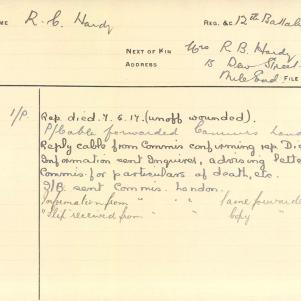 NAME R. C. Hardy REG. &C 12th Battal
NEXT OF KIN Mrs R. B. Hardy
ADDRESS 13 Dew Street
Mile End FILE
1/P. Rep. died 7.6.17. (unoff wounded).
P/Cable forwarded Commrs Lond
Reply cable from Commis confirming rep. D.
Information sent Inquirer, advising lette
Commis. for particulars of death, etc.
I/B. sent Commis. London.
Information from " " " same forwarde
"Slip received from " " copy "